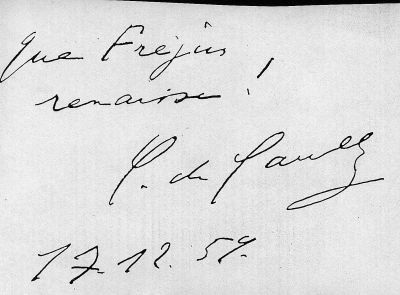 Que Fréjus
renaisse !
C. de Gaulle
17.12.59.